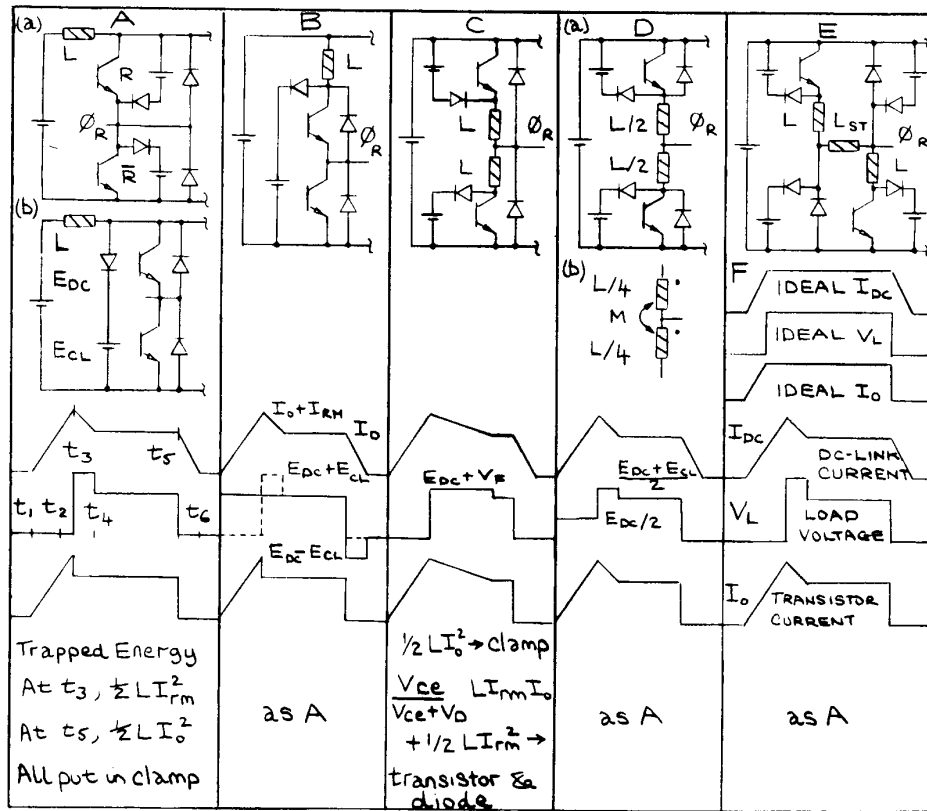 (a)
A
L
R
Ø_R
R̅
(b)
L
E_DC
E_CL
t₃
t₅
t₁ t₂
t₄
t₆
Trapped Energy
At t₃, ½ LI²_rm
At t₅, ½ LI₀²
All put in clamp
B
L
Ø_R
I₀+I_RM
I₀
E_DC+E_CL
E_DC-E_CL
as A
C
L
Ø_R
L
E_DC+V_F
½ LI₀² → clamp
Vce
Vce+V_D
LI_rm I₀
+ 1/2 LI_rm² →
transistor &
diode
(a)
D
L/2
Ø_R
L/2
(b)
L/4
M
L/4
E_DC+E_CL
2
E_DC/2
as A
E
L
L_ST
Ø_R
L
F
IDEAL I_DC
IDEAL V_L
IDEAL I₀
I_DC
DC-LINK
CURRENT
V_L
LOAD
VOLTAGE
I₀
TRANSISTOR
CURRENT
as A